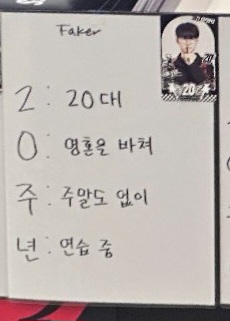 Faker
20
2 : 20대
0 : 영혼을 바쳐
주 : 주말도 없이
년 : 연습 중